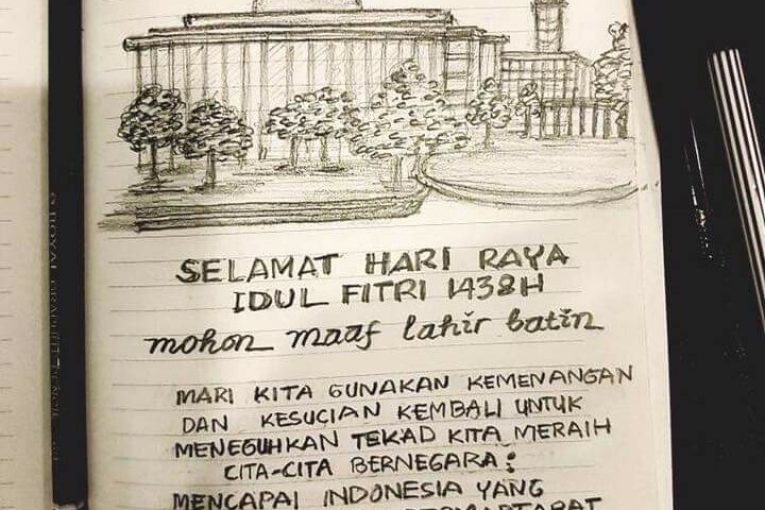 SELAMAT HARI RAYA
IDUL FITRI 1438H
mohon maaf lahir batin
MARI KITA GUNAKAN KEMENANGAN
DAN KESUCIAN KEMBALI UNTUK
MENEGUHKAN TEKAD KITA MERAIH
CITA-CITA BERNEGARA:
MENCAPAI INDONESIA YANG